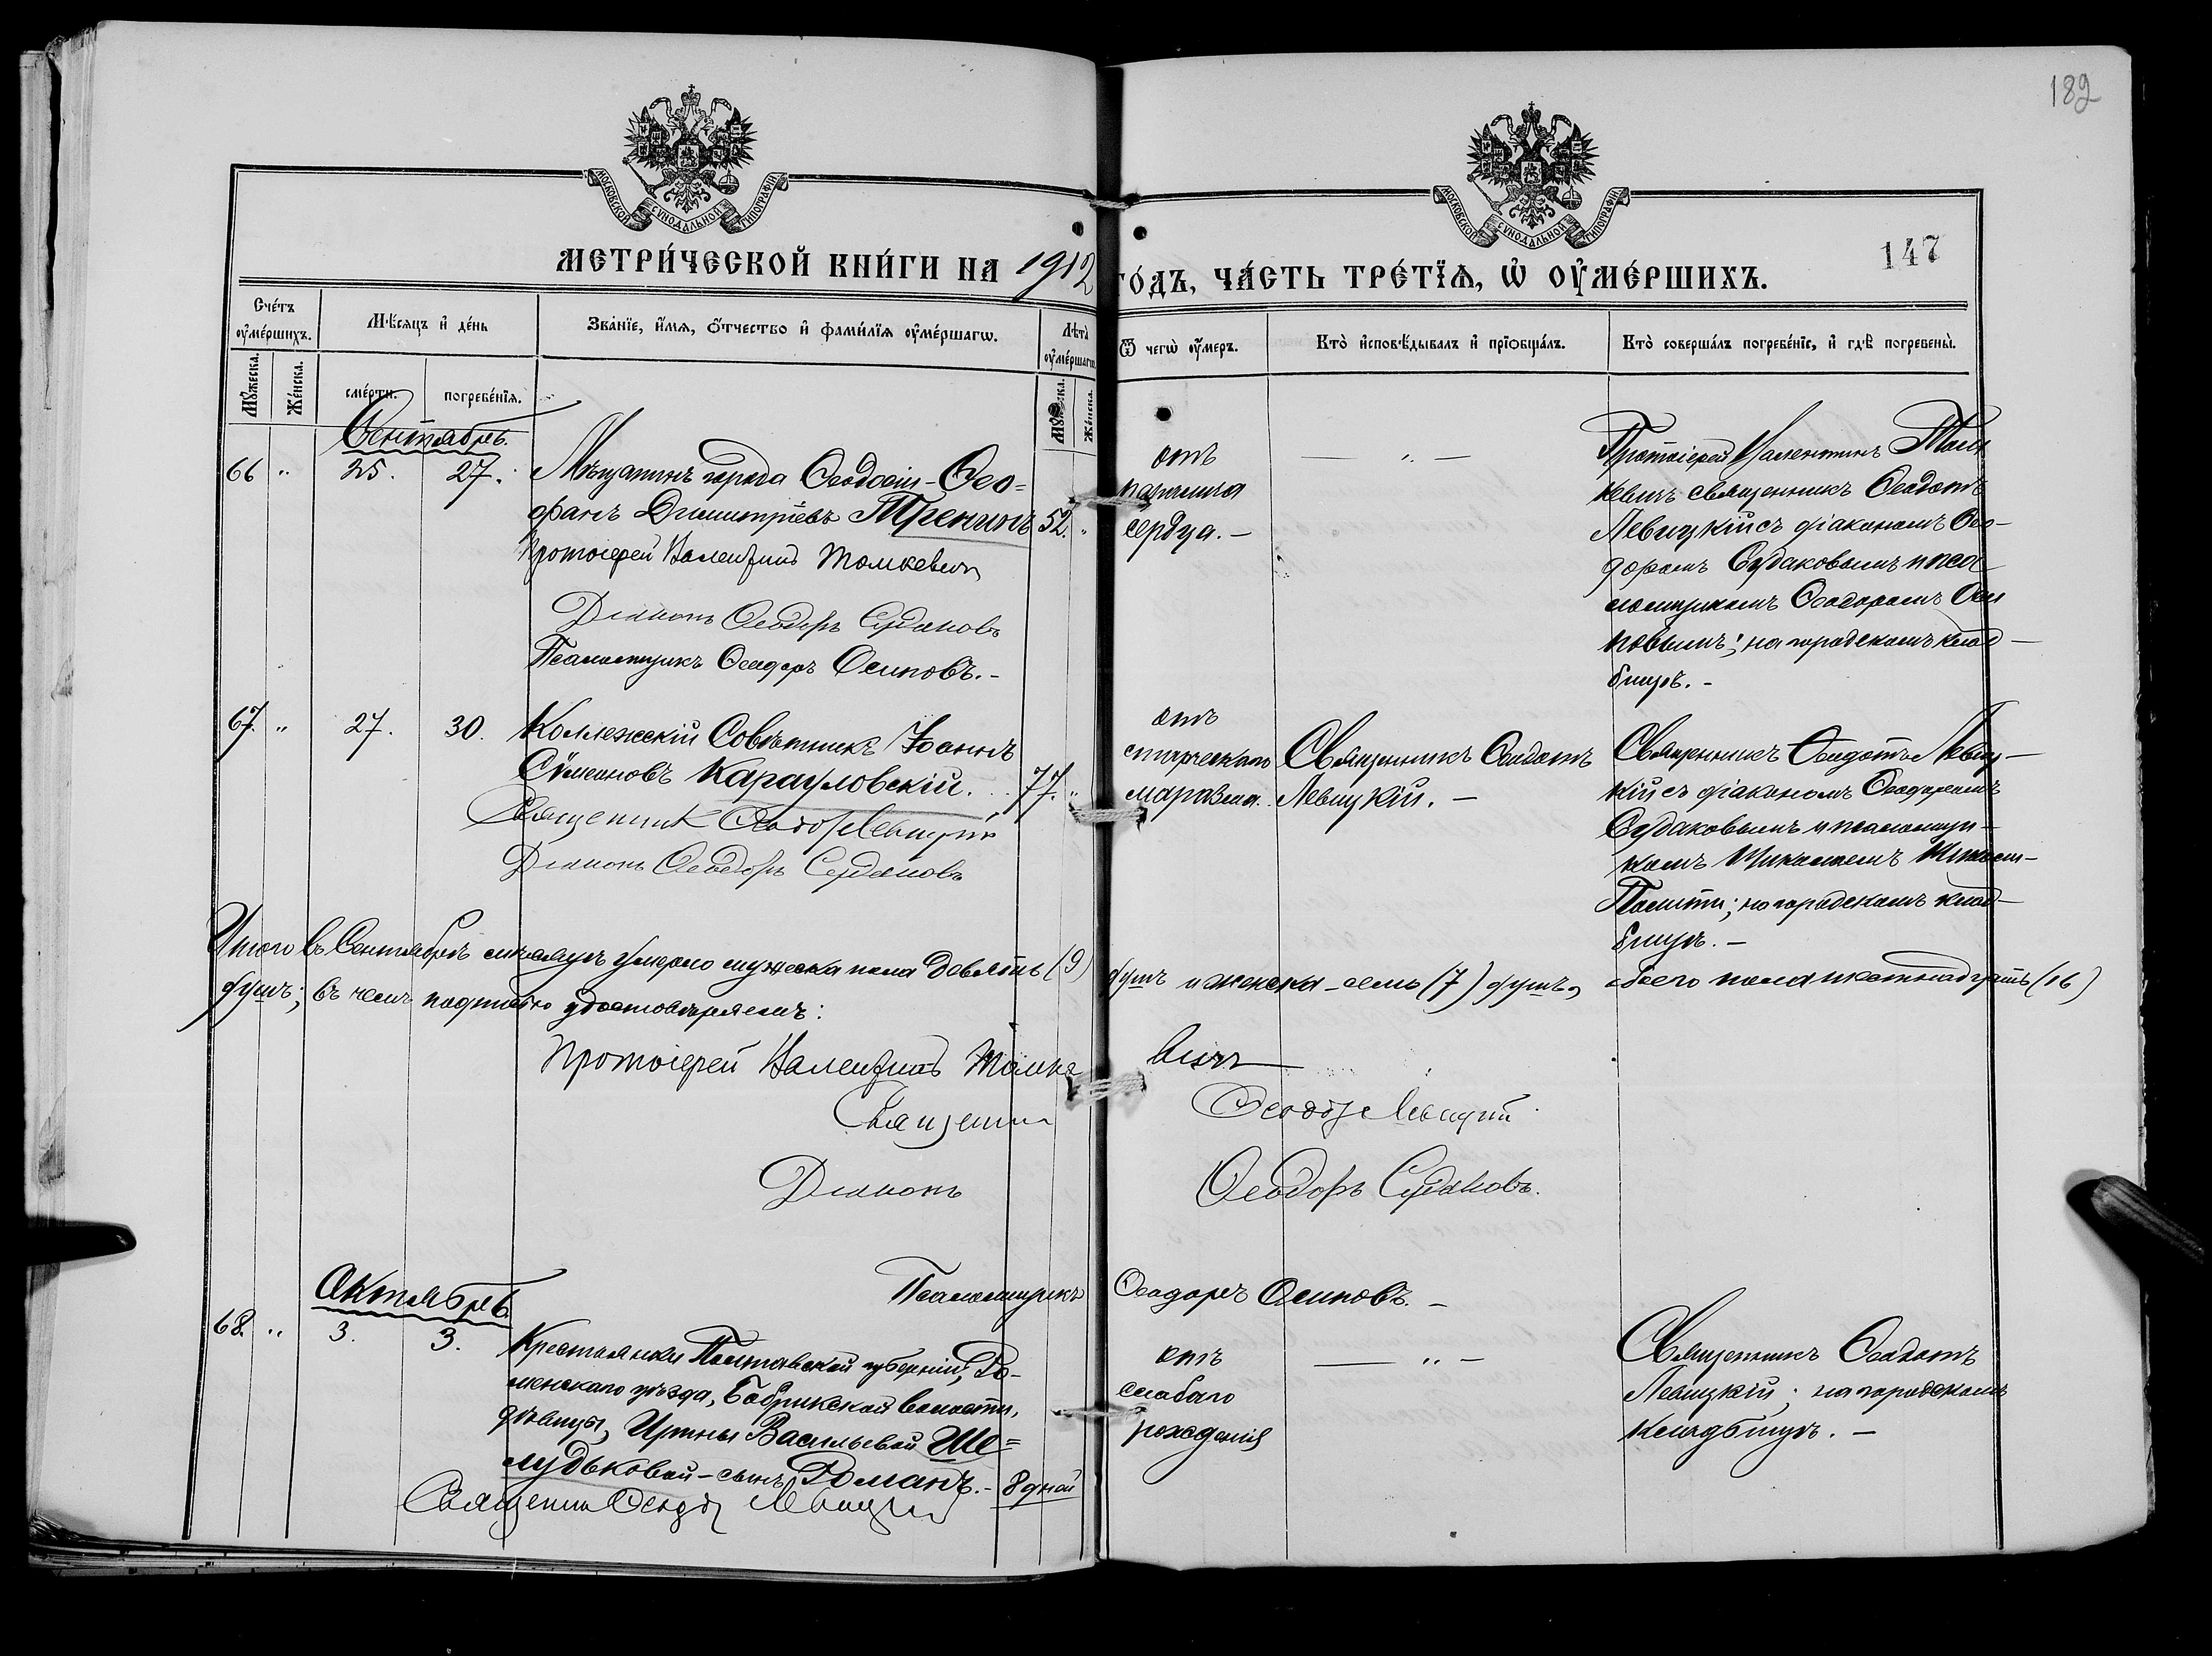 182
МОСКОВСКОЙ СѴНОДАЛЬНОЙ ТИПОГРАФІИ
МОСКОВСКОЙ СѴНОДАЛЬНОЙ ТИПОГРАФІИ
147
МЕТРИ́ЧЕСКОЙ КНИ́ГИ НА 1912
ГО́ДЪ, ЧА́СТЬ ТРЕ́ТЇѦ, Ѡ҆ ОУ҆МЕ́РШИХЪ.
Сче́тъ оу҆ме́ршихъ.
Мѣ́сяцъ и҆ де́нь
Зва́нїе, и҆́мѧ, ѻ҆́тчество и҆ фами́лїѧ оу҆ме́ршагѡ.
Лѣ́та оу҆ме́ршагѡ.
Ѿ чегѡ̀ оу҆́меръ.
Кто̀ и҆сповѣ́дывалъ и҆ прїобща́лъ.
Кто̀ соверша́лъ погребе́нїе, и҆ гдѣ̀ погребены̀.
Мꙋ́жеска.
Же́нска.
сме́рти.
погребе́нїѧ.
Мꙋ́жеска.
Же́нска.
Сентябрь.
66 " 25. 27. Мѣщанинъ города Ѳеодосіи - Ѳео=
фанъ Димитріевъ Тренинъ 52. "
Протоіерей Валентинъ Томкевичъ
Діаконъ Ѳеодоръ Судаковъ
Псаломщикъ Ѳеодоръ Осиповъ. -
отъ
паралича
сердца. -
— " —
Протоіерей Валентинъ Том
кевичъ священникъ Ѳеодотъ
Левицкій съ діакономъ Ѳео-
доромъ Судаковымъ и пса
ломщикомъ Ѳеодоромъ Оси
повымъ; на городскомъ клад-
бищѣ. -
67. " 27. 30. Коллежскій Совѣтникъ Іоаннъ
Сѵмеоновъ Карауловскій. 77. "
Священник Ѳеодот Левицкій
Діаконъ Ѳеодоръ Судаковъ
отъ
старческаго
маразма.
Священникъ Ѳеодотъ
Левицкій. -
Священникъ Ѳеодотъ Левиц-
кій съ діакономъ Ѳеодоромъ
Судаковымъ и псаломщи-
комъ
на городскомъ клад-
бищѣ. -
Итого въ Сентябрѣ мѣсяцѣ умерло мужеска пола девять (9) душъ и женска - семь (7) душъ, обоего пола шестнадцать (16)
душъ; въ чемъ подписью удостовѣряемъ:
Протоіерей Валентинъ Томкевичъ
Священник Ѳеодот Левицкій
Діаконъ Ѳеодоръ Судаковъ.
Псаломщикъ Ѳеодоръ Осиповъ. -
Октябрь.
68. " 3. 3. Крестьянки Полтавской губерніи, Ро-
менскаго уѣзда, Бобрикской волости,
дѣвицы, Ирины Васильевой Ше=
лудьковой - сынъ Романъ. - 8 дней
Священник Ѳеодот Левицкій
отъ
слабаго
рожденія
— " —
Священникъ Ѳеодотъ
Левицкій; на городскомъ
кладбищѣ. -